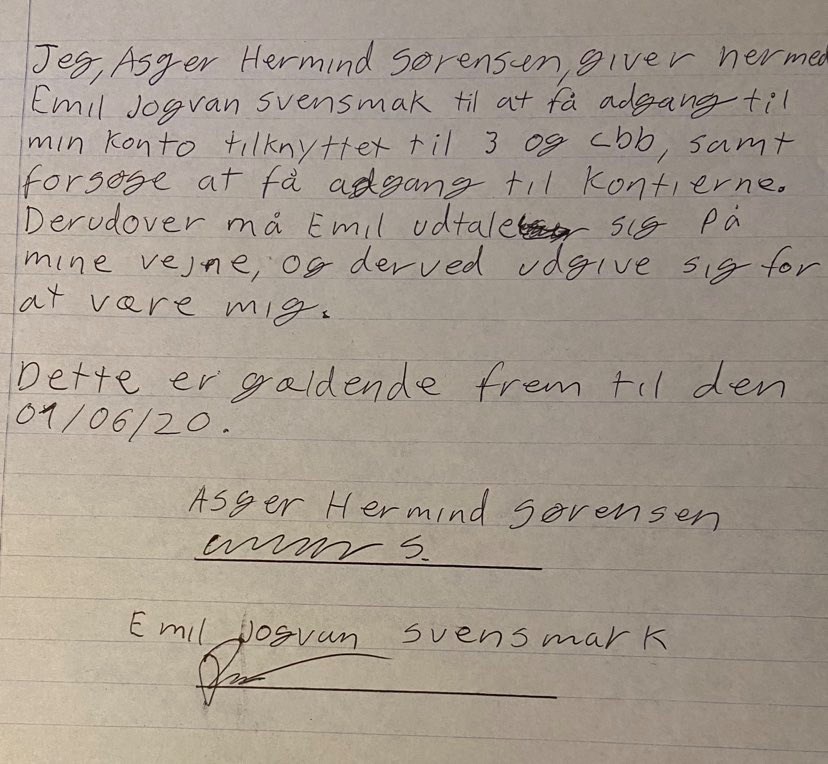 Jeg, Asger Hermind Sørensen, giver hermed
Emil Jogvan Svensmak til at få adgang til
min konto tilknyttet til 3 og cbb, samt
forsøge at få adgang til kontierne.
Derudover må Emil udtale sig på
mine vejne, og derved udgive sig for
at være mig.
Dette er gældende frem til den
01/06/20.
Asger Hermind Sørensen
S.
Emil Jogvan Svensmark